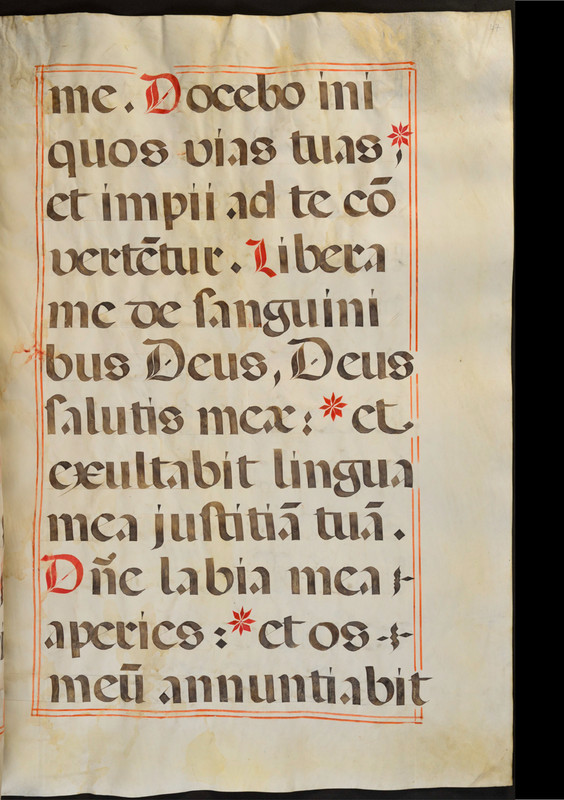 me. Docebo ini
quos vias tuas *;
et impii ad te cō
vertētur. Libera
me de ſanguini
bus Deus, Deus
ſalutis meæ: * et
exultabit lingua
mea juſtitiā tuā.
Dñe labia mea
aperies: * et os
meū annuntiabit